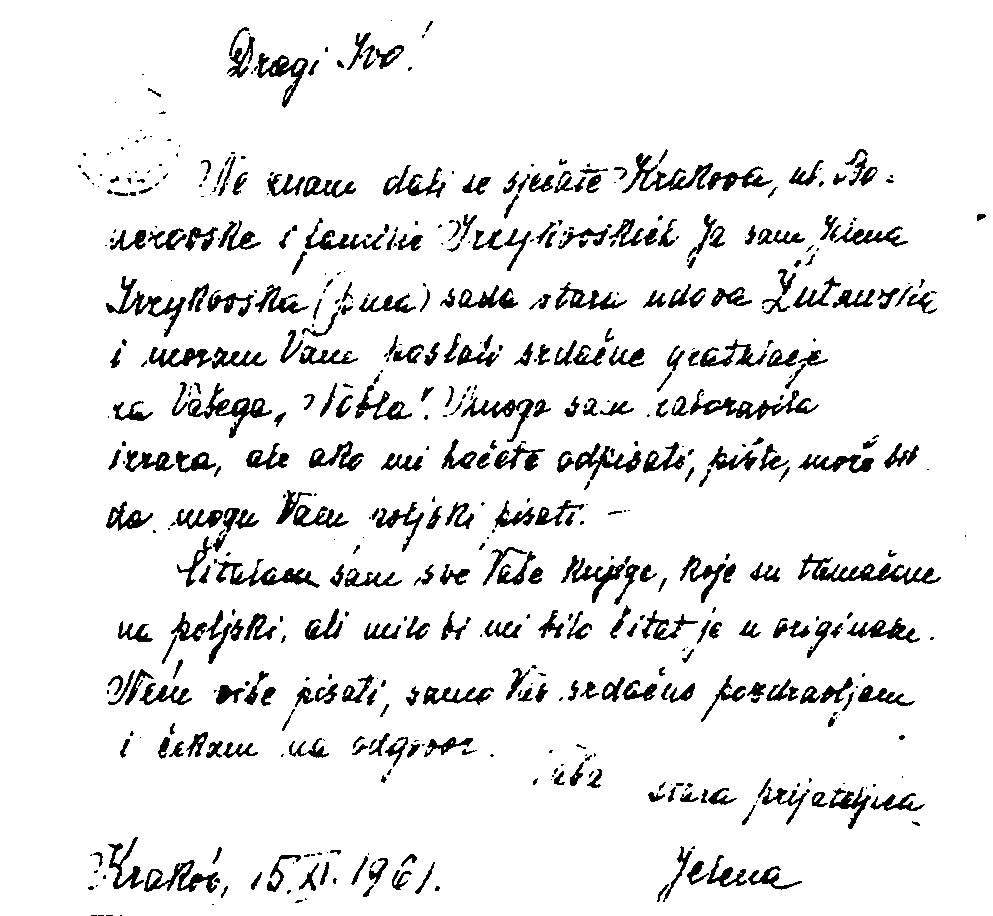 Dragi Ivo!
Ne znam dali se sjećate Krakova, ul. Bo-
nerovske i familie Irzykovskich Ja sam Jelena
Irzykovska (puna) sada stara udova Żuławska
i moram Vam poslati srdačne gratulacje
za Vašega „Nobla". Mnogo sam zaboravila
izraza, ale ako mi hoćete odpisati, pišite, može bit
da mogu Vam poljski pisati. –
Čitalam sam sve Vaše knjige, koje su tlumačene
na poljski, ali milo bi mi bilo čitat je u originale.
Neću više pisati, samo Vas srdačno pozdravljam
i čekam na odgovor.
Vaša stara prijateljica
Kraków, 15.XI.1961. Jelena